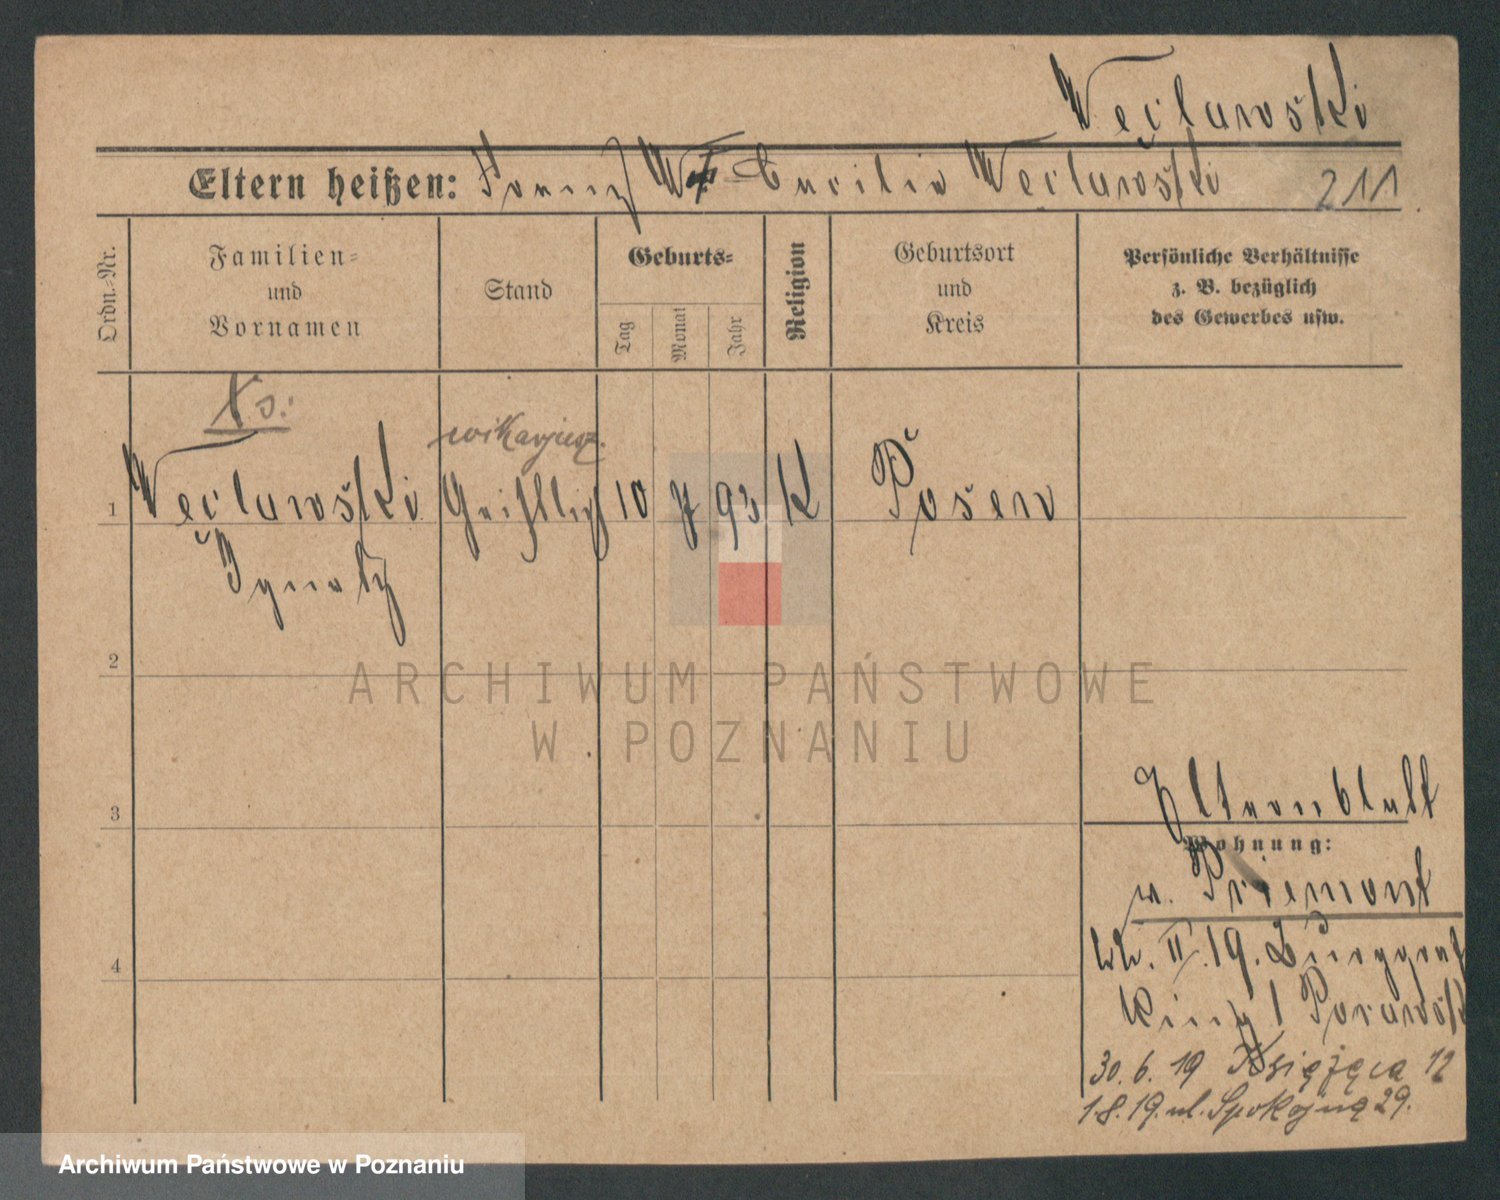 Węcławski
Eltern heißen: Franz Cäcilia Węcławski 211
Ordn.-Nr.
Familien-
und
Vornamen
Stand
Geburts-
Tag
Monat
Jahr
Religion
Geburtsort
und
Kreis
Persönliche Verhältnisse
z. B. bezüglich
des Gewerbes usw.
Ks:
wikarjusz.
1 Węcławski Geistlich 10 7 93 K Posen
Ignatz
2
3
4
Elternblatt
Wohnung:
w. Priemont
II. 19. Burggraf
Ring 1
30. 6. 19 Książęca 12
1.8.19. ul. Spokojna 29.
ARCHIWUM PAŃSTWOWE
W POZNANIU
Archiwum Państwowe w Poznaniu